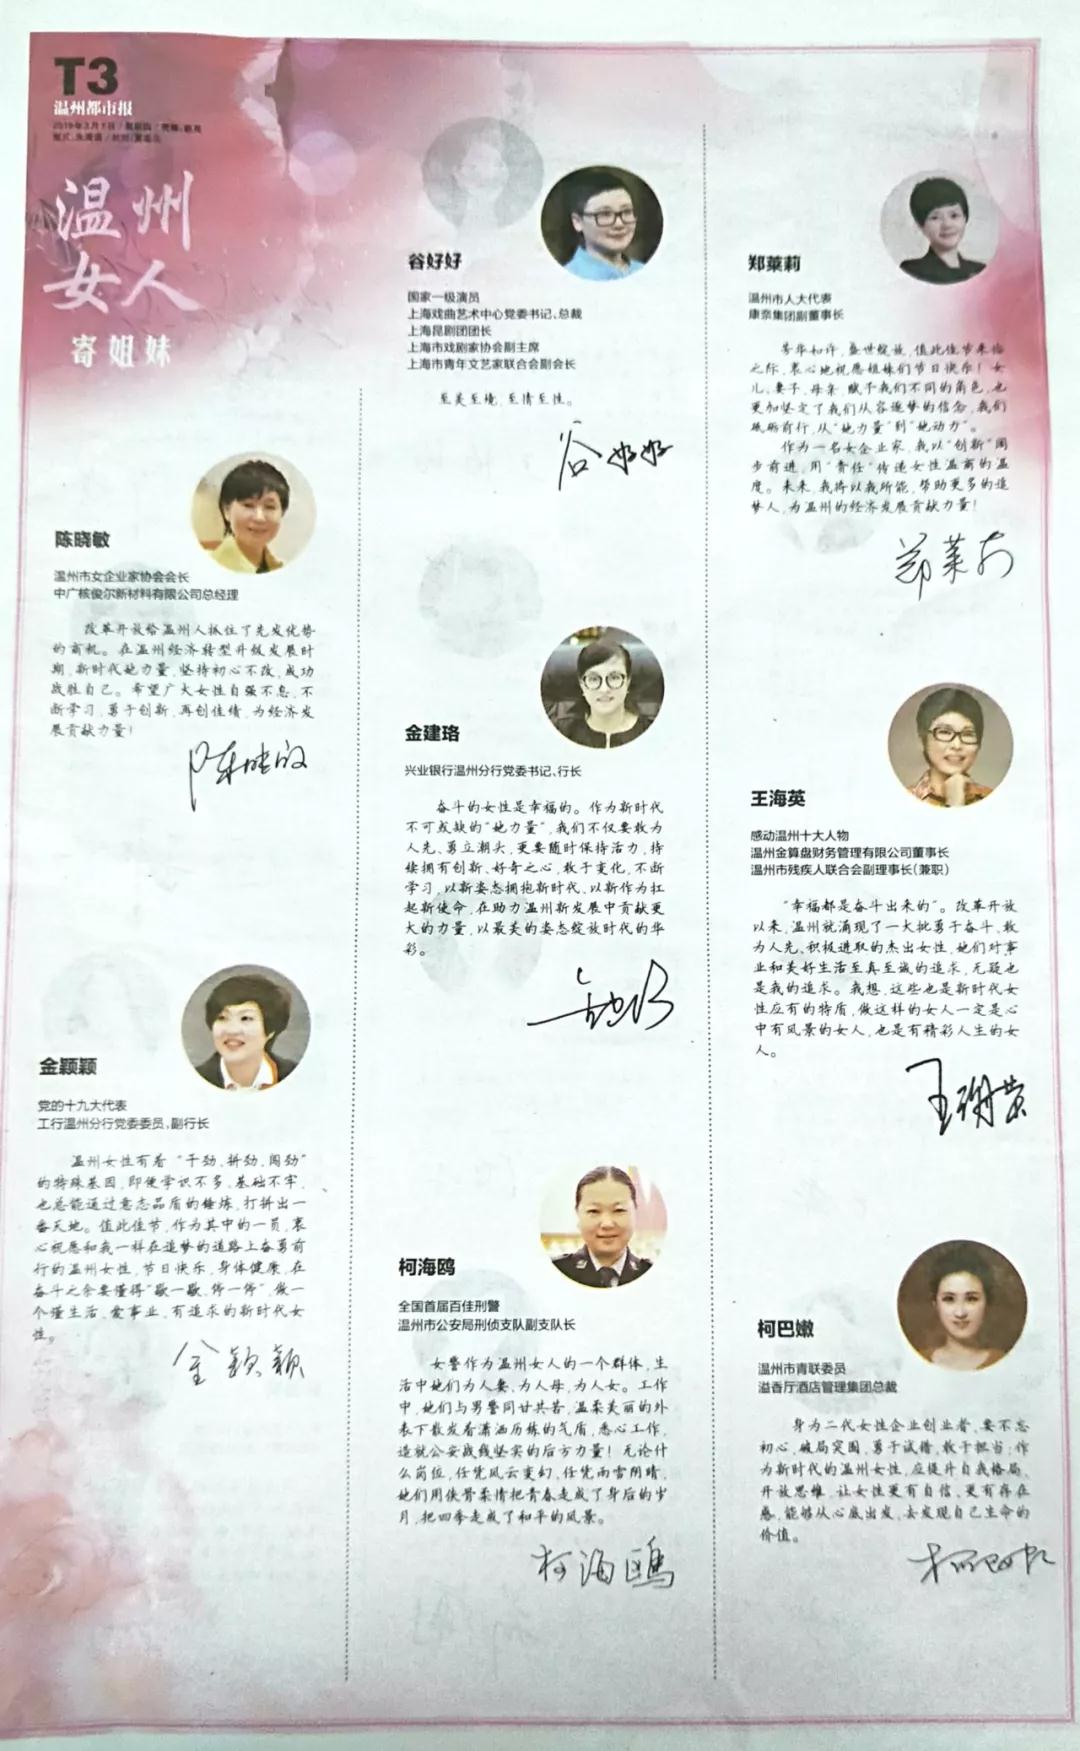 T3
温州都市报
2019年3月7日 / 星期四 /
温州
女人
寄姐妹
陈晓敏
温州市女企业家协会会长
中广核俊尔新材料有限公司总经理
改革开放给温州人抓住了先发优势
的商机。在温州经济转型升级发展时
期,新时代她力量,坚持初心不改,成功
战胜自己。希望广大女性自强不息,不
断学习,勇于创新,再创佳绩,为经济发
展贡献力量!
陈晓敏
金颖颖
党的十九大代表
工行温州分行党委委员、副行长
温州女性有着“干劲、拼劲、闯劲”
的特殊基因,即使学识不多、基础不牢,
也总能通过意志品质的锤炼,打拼出一
番天地。值此佳节,作为其中的一员,衷
心祝愿和我一样在追梦的道路上奋勇前
行的温州女性,节日快乐,身体健康,在
奋斗之余要懂得“歇一歇,停一停”,做一
个懂生活、爱事业、有追求的新时代女
性。
金颖颖
谷好好
国家一级演员
上海戏曲艺术中心党委书记、总裁
上海昆剧团团长
上海市戏剧家协会副主席
上海市青年文艺家联合会副会长
至美至境,至情至性。
谷好好
金建珞
兴业银行温州分行党委书记、行长
奋斗的女性是幸福的。作为新时代
不可或缺的“她力量”,我们不仅要敢为
人先、勇立潮头,更要随时保持活力,持
续拥有创新、好奇之心,敢于变化,不断
学习,以新姿态拥抱新时代、以新作为扛
起新使命,在助力温州新发展中贡献更
大的力量,以最美的姿态绽放时代的华
彩。
柯海鸥
全国首届百佳刑警
温州市公安局刑侦支队副支队长
女警作为温州女人的一个群体,生
活中她们为人妻、为人母,为人女。工作
中,她们与男警同甘共苦,温柔美丽的外
表下散发着潇洒历练的气质,悉心工作,
造就公安战线坚实的后方力量!无论什
么岗位,任凭风云变幻,任凭雨雪阴晴,
她们用侠骨柔情把青春走成了身后的岁
月,把四季走成了和平的风景。
柯海鸥
郑莱莉
温州市人大代表
康奈集团副董事长
芳华如许,盛世绽放,值此佳节来临
之际,衷心地祝愿姐妹们节日快乐!女
儿、妻子、母亲,赋予我们不同的角色,也
更加坚定了我们从容逐梦的信念,我们
砥砺前行,从“她力量”到“她动力”。
作为一名女企业家,我以“创新”阔
步前进,用“责任”传递女性温商的温
度。未来,我将以我所能,帮助更多的追
梦人,为温州的经济发展贡献力量!
郑莱莉
王海英
感动温州十大人物
温州金算盘财务管理有限公司董事长
温州市残疾人联合会副理事长(兼职)
“幸福都是奋斗出来的”。改革开放
以来,温州就涌现了一大批勇于奋斗、敢
为人先、积极进取的杰出女性,她们对事
业和美好生活至真至诚的追求,无疑也
是我的追求。我想,这些也是新时代女
性应有的特质,做这样的女人一定是心
中有风景的女人,也是有精彩人生的女
人。
王海英
柯巴嫩
温州市青联委员
溢香厅酒店管理集团总裁
身为二代女性企业创业者,要不忘
初心,破局突围,勇于试错,敢于担当;作
为新时代的温州女性,应提升自我格局,
开放思维,让女性更有自信、更有存在
感,能够从心底出发,去发现自己生命的
价值。